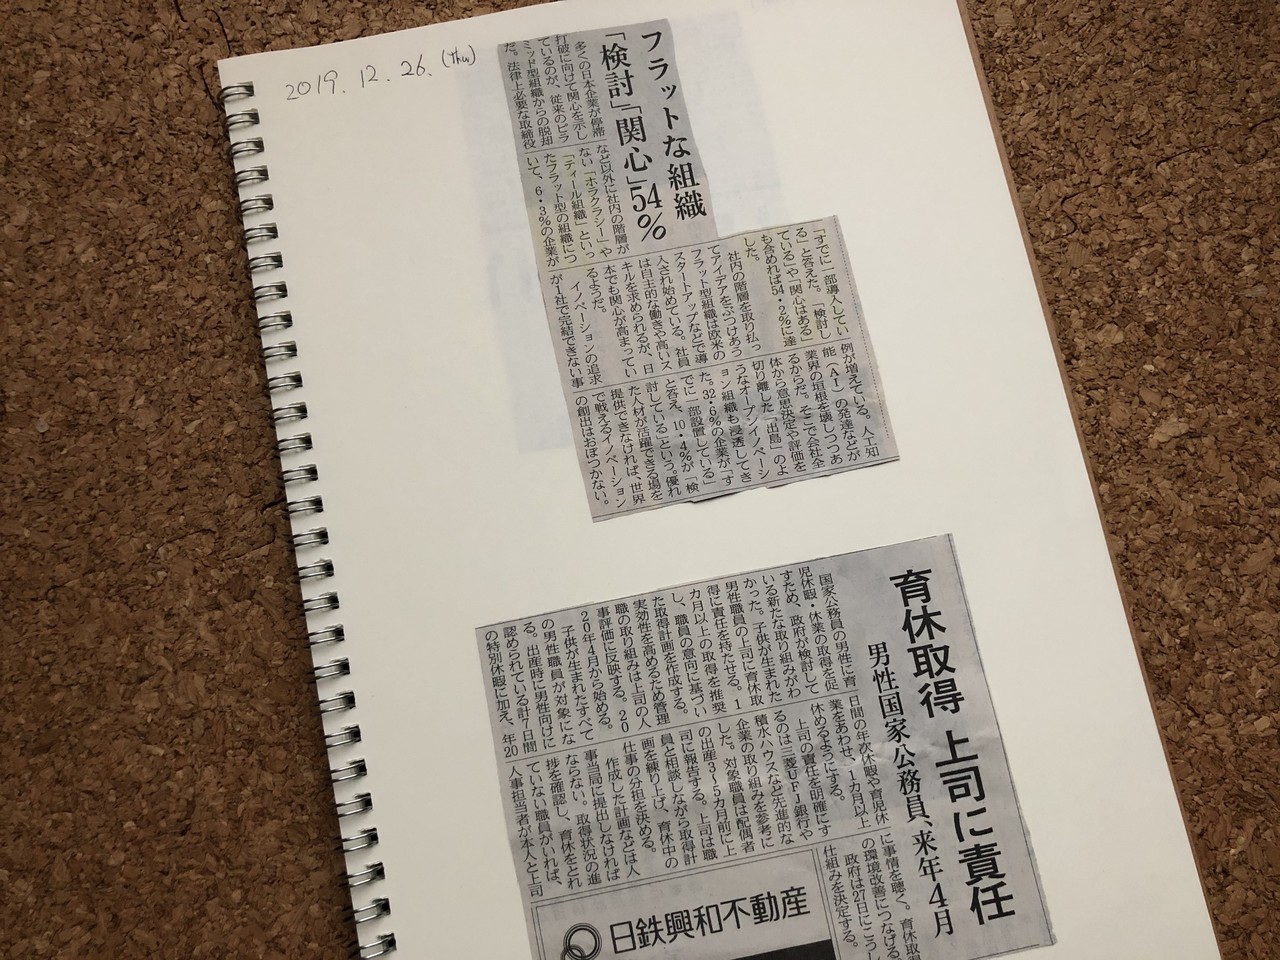 2019.12.26.(thu)
フラットな組織
「検討」「関心」54%
多くの日本企業が停滞
打破に向けて関心を示し
ているのが、従来のピラ
ミッド型組織からの脱却
だ。法律上必要な取締役
など以外に社内の階層が
ない「ホラクラシー」や
「ティール組織」といっ
たフラット型の組織につ
いて、6・3%の企業が
「すでに一部導入してい
る」と答えた。「検討し
ている」や「関心はある」
も含めれば54・2%に達
した。
社内の階層を取り払っ
てアイデアをぶつけあう
フラット型組織は欧米の
スタートアップなどで導
入され始めている。社員
は自主的な働きや高いス
キルを求められるが、日
本でも関心が高まってい
るようだ。
イノベーションの追求
が1社で完結できない事
例が増えている。人工知
能(AI)の発達などが
業界の垣根を壊しつつあ
るからだ。そこで会社全
体から意思決定や評価を
切り離した「出島」のよ
うなオープンイノベーシ
ョン組織も浸透してき
た。32・6%の企業が「す
でに一部設置している」
と答え、10・4%が「検
討している」という。優れ
た人材が活躍できる場を
提供できなければ、世界
で戦えるイノベーション
の創出はおぼつかない。
育休取得 上司に責任
男性国家公務員、来年4月
国家公務員の男性に育
児休暇・休業の取得を促
すため、政府が検討して
いる新たな取り組みがわ
かった。子供が生まれた
男性職員の上司に育休取
得に責任を持たせる。1
カ月以上の取得を推奨
し、職員の意向に基づい
た取得計画を作成する。
実効性を高めるため管理
職の取り組みは上司の人
事評価に反映する。20
20年4月から始める。
子供が生まれたすべて
の男性職員が対象にな
る。出産時に男性向けに
認められている計7日間
の特別休暇に加え、年20
日間の年次休暇や育児休
業をあわせ、1カ月以上
休めるようにする。
上司の責任を明確にす
るのは三菱UFJ銀行や
積水ハウスなど先進的な
企業の取り組みを参考に
した。対象職員は配偶者
の出産3〜5カ月前に上
司に報告する。上司は職
員と相談しながら取得計
画を練り上げ、育休中の
仕事の分担を決める。
作成した計画などは人
事当局に提出しなければ
ならない。取得状況の進
捗を確認し、育休をとれ
ていない職員がいれば、
人事担当者が本人と上司
に事情を聴く。育休取得
の環境改善につなげる。
政府は27日にこうし
仕組みを決定する。
日鉄興和不動産